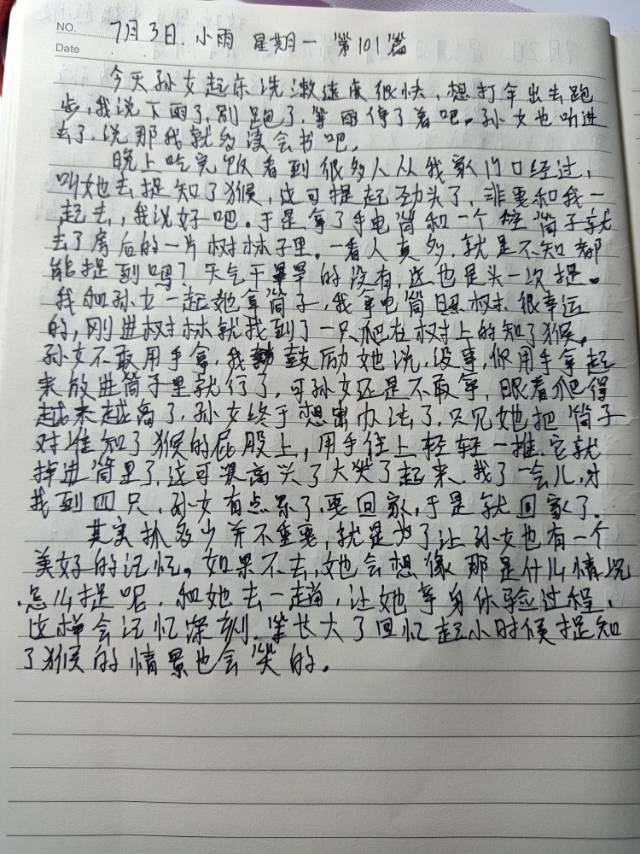 NO.
Date
7月3日.小雨 星期一 第101篇
今天孙女起床洗漱速度很快,想打伞出去跑
步,我说下雨了,别跑了,等雨停了着吧。孙女也听进
去了,说那我就多读会书吧。
晚上吃完饭看到很多人从我家门口经过,
叫她去捉知了猴,这可提起劲头了,非要和我一
起去,我说好吧。于是拿了手电筒和一个空筒子就
去了房后的一片树林子里。一看人真多,就是不知都
能捉到吗?天气干旱旱的没有,这也是头一次捉。
我和孙女一起她拿筒子,我拿电筒照树,很幸运
的,刚进树林就找到了一只爬在树上的知了猴。
孙女不敢用手拿,我鼓励她说,没事,你用手拿起
来放进筒子里就行了,可孙女还是不敢拿,眼看爬得
越来越高了,孙女终于想出办法了,只见她把筒子
对准知了猴的屁股上,用手往上轻轻一推,它就
掉进筒里了,这可把高兴了大笑了起来。找了一会儿,才
找到四只,孙女有点累了,要回家,于是就回家了。
其实抓多少并不重要,就是为了让孙女也有一个
美好的记忆。如果不去,她会想像那是什么情况
怎么捉呢,和她去一趟,让她亲身体验过程,
这样会记忆深刻。等长大了回忆起小时候捉知
了猴的情景也会笑的。